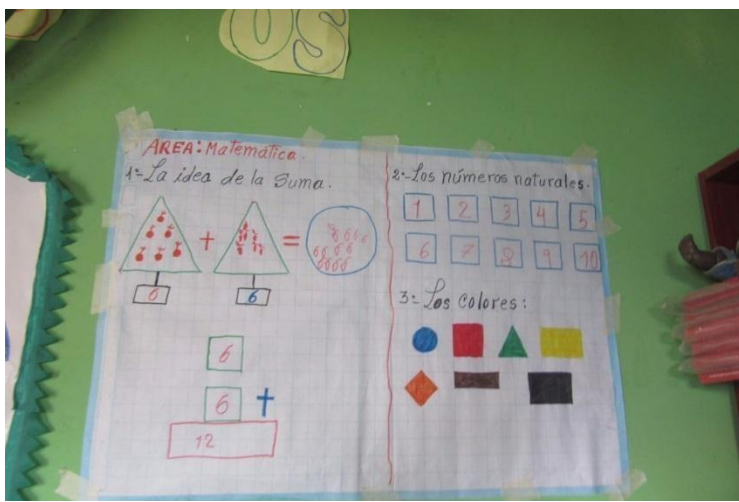 OS
AREA: Matemática.
1:- La idea de la Suma.
+ =
6 6
6
6 +
12
2:- Los números naturales.
1 2 3 4 5
6 7 8 9 10
3:- Los colores: